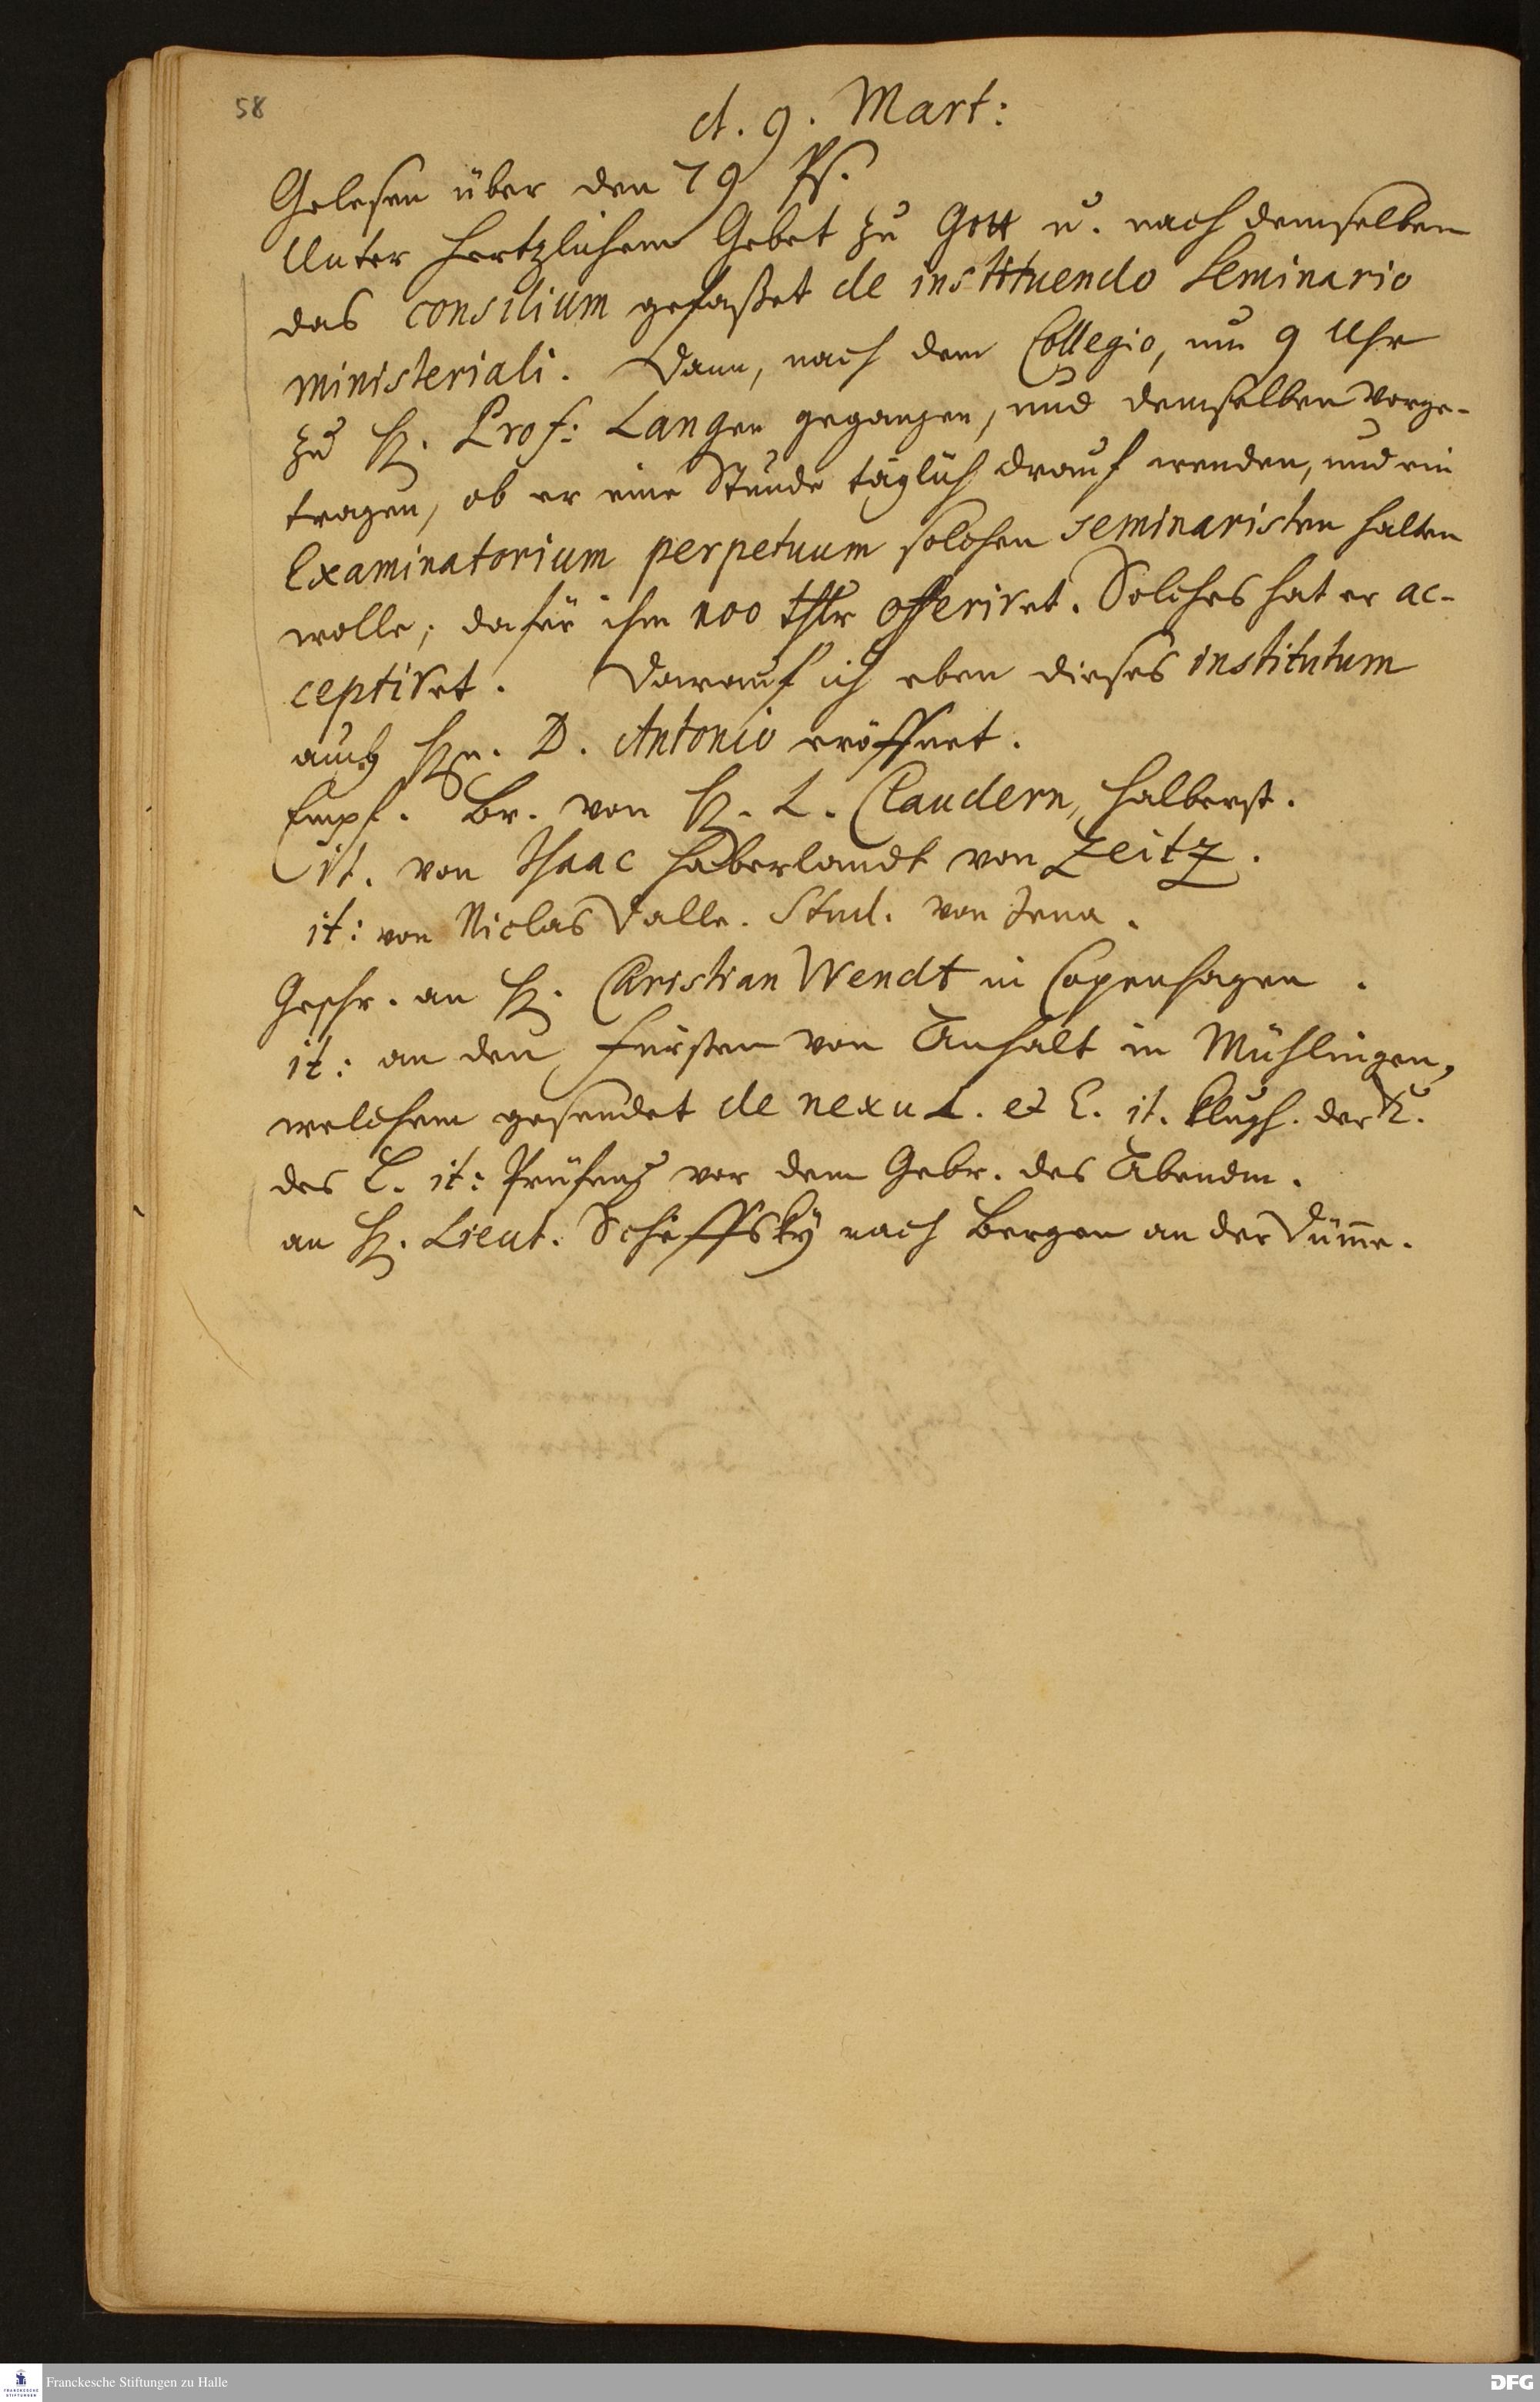 58
d. 9. Mart:
Gelesen über den 79 Ps.
Unter hertzlichem Gebet zu Gott u. nach demselben
das consilium gefaßet de instituendo Seminario
ministeriali. Dann, nach dem Collegio, um 9 Uhr
zu H. Prof: Langen gegangen, und demselben vorge-
tragen, ob er eine Stunde täglich drauf wenden, und ein
Examinatorium perpetuum solchen Seminaristen halten
wolle; dafür ihm 100 thlr offeriret. Solches hat er ac-
ceptiret. Darauf ich eben dieses institutum
auch Hn. D. Antonio eröffnet.
Empf. Br. von H. L. Claudern, Halberst.
it. von Isaac Haberlandt von Zeitz.
it: von Niclas Dalle. Stud. von Jena.
Geschr. an H. Christian Wendt in Copenhagen.
it: an den Fürsten von Anhalt in Mühlingen,
welchem gesendet de nexu L. et E. it. Klugh. der
des L. it: Prüfung vor dem Gebr. des Abendm.
an H. Lieut. Scheffsky nach Bergen an der Dümme.
Franckesche Stiftungen zu Halle
DFG